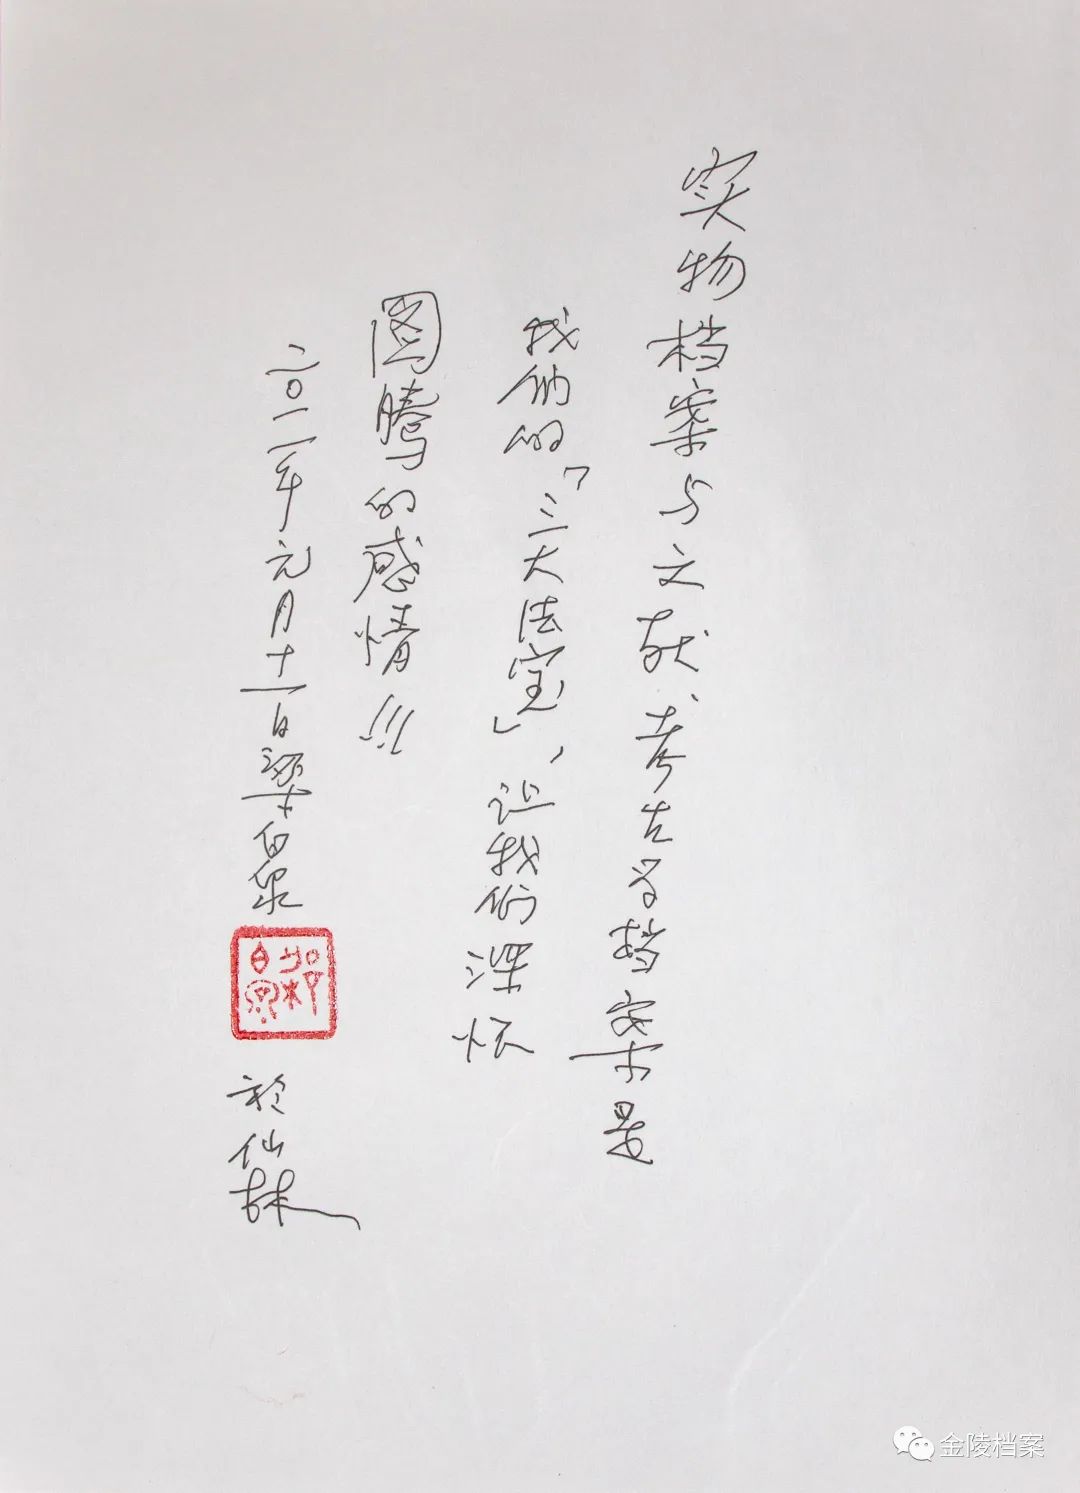 实物档案与文献、考古学档案是
我们的「三大法宝」，让我们深怀
图腾的感情!!!
二〇一一年元月十一日梁白泉
梁白泉
於仙林
金陵档案